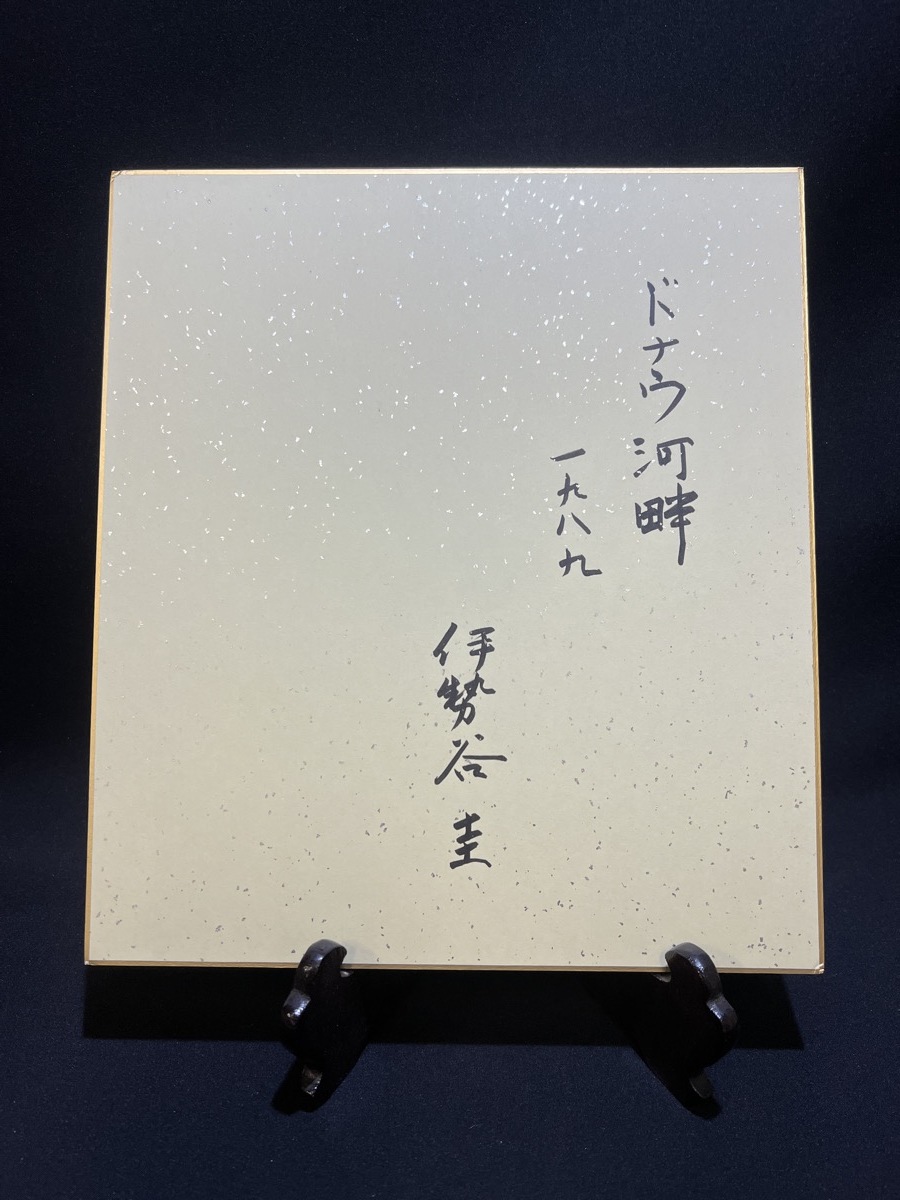 ドナウ河畔
一九八九
伊勢谷 圭